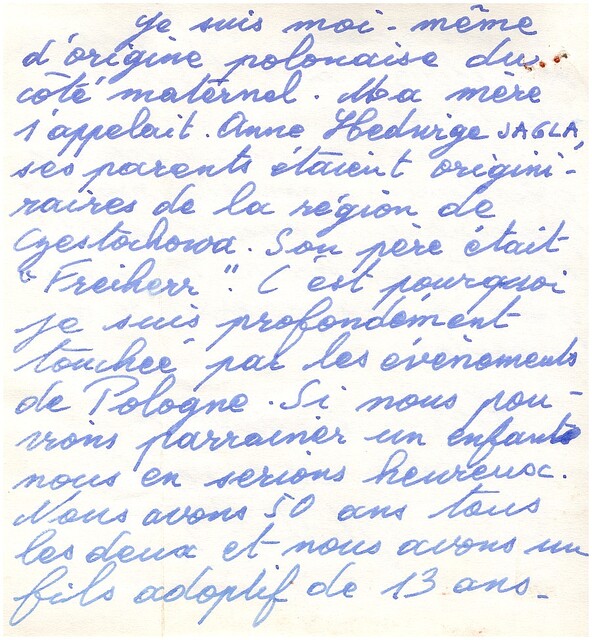 Je suis moi-même
d'origine polonaise du
côté maternel. Ma mère
s'appelait. Anne Hedwige JAGLA,
ses parents étaient origini-
raires de la région de
Czestochowa. Son père était
"Freiherr". C'est pourquoi
je suis profondément
touchée par les évènements
de Pologne. Si nous pou-
vions parrainer un enfant
nous en serions heureux.
Nous avons 50 ans tous
les deux et nous avons un
fils adoptif de 13 ans.